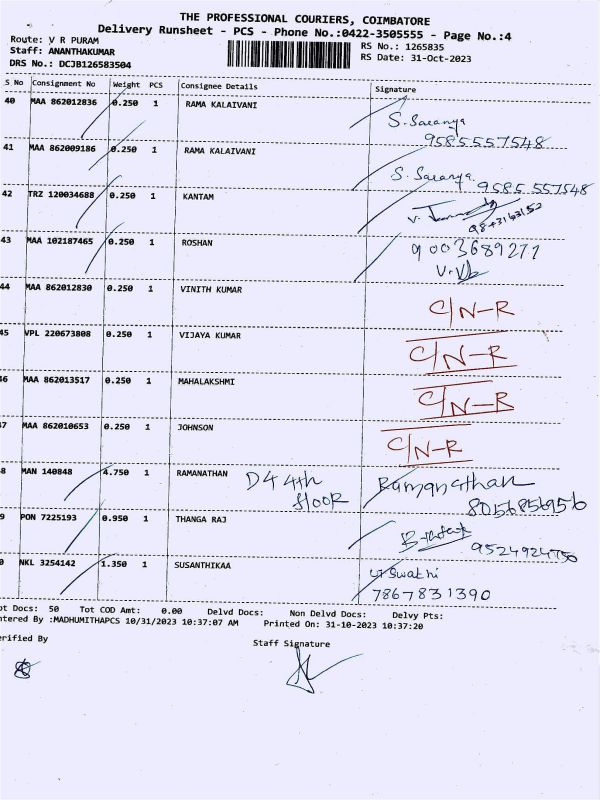 THE PROFESSIONAL COURIERS, COIMBATORE
Delivery Runsheet - PCS - Phone No.:0422-3505555 - Page No.:4
Route: V R PURAM
RS No.: 1265835
Staff: ANANTHAKUMAR
RS Date: 31-Oct-2023
DRS No.: DCJB126583504
S No Consignment No Weight PCS Consignee Details Signature
40 MAA 862012836 0.250 1 RAMA KALAIVANI
S. Saranya
9585557548
41 MAA 862009186 0.250 1 RAMA KALAIVANI
S. Saranya. 9585 557548
42 TRZ 120034688 0.250 1 KANTAM
43 MAA 102187465 0.250 1 ROSHAN
9003689277
44 MAA 862012830 0.250 1 VINITH KUMAR
C/N-R
45 VPL 220673808 0.250 1 VIJAYA KUMAR
C/N-R
46 MAA 862013517 0.250 1 MAHALAKSHMI
C/N-R
47 MAA 862010653 0.250 1 JOHNSON
C/N-R
8 MAN 140848 4.750 1 RAMANATHAN D4 4th floor Ramanathan
8056856956
9 PON 7225193 0.950 1 THANGA RAJ
9524924750
0 NKL 3254142 1.350 1 SUSANTHIKAA
Swathi
7867831390
ot Docs: 50 Tot COD Amt: 0.00 Delvd Docs: Non Delvd Docs: Delvy Pts:
ntered By :MADHUMITHAPCS 10/31/2023 10:37:07 AM Printed On: 31-10-2023 10:37:20
erified By Staff Signature